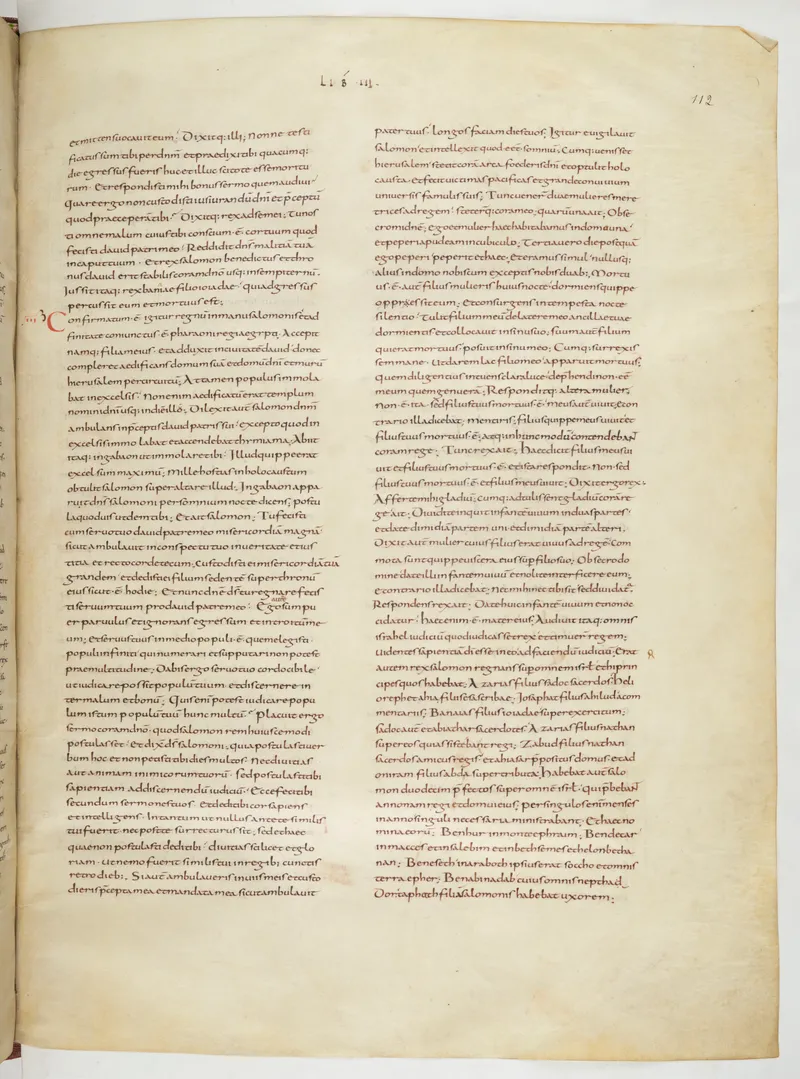 LIB III.
112
et mittens uocauit eum. Dixitq: illi; Nonne testi
ficatus sum tibi per dnm et praedixi tibi quacumq:
die egressus fueris huc et illuc scito te esse moritu
rum. Et respondisti mihi bonus sermo quem audiui.
Quare ergo non custodisti iusiurandū dni et pceptū
quod praeceperā tibi. Dixitq: rex ad semei; Tu nosti
omne malum cuius tibi conscium ē cor tuum quod
fecisti dauid patri meo. Reddidit dns malitiā tuā
in caput tuum. Et rex salomon benedictus et thro
nus dauid erit stabilis coram dno usq: in sempiternū.
Jussit itaq: rex banaiae filio ioiadae. qui adgressus
percussit eum et mortuus est;
Confirmatum ē igitur regnū in manu salomonis et ad
finitate coniunctus ē pharaoni regi aegypti. Accepit
namq: filiam eius. et adduxit in ciuitatē dauid donec
compleret aedificans domum suā et domū dni et murū
hierusalem per circuitū; Attamen populus immola
bat in excelsis. Non enim aedificatū erat templum
nomini dni usq: in diē illū. Dilexit aut salomon dnm
ambulans in pceptis dauid patris sui. excepto quod in
excelsis immolabat et accendebat thymiama; Abiit
itaq: in gabaon ut immolaret ibi. Illud quippe erat
excelsum maximū; Mille hostias in holocaustum
obtulit salomon super altare illud; In gabaon appa
ruit dns salomoni per somnium nocte dicens; postu
la quod uis ut dem tibi; Et ait salomon; Tu fecisti
cum seruo tuo dauid patre meo misericordiā magnā
sicut ambulauit in conspectu tuo in ueritate et ius
titia et recto corde tecum; Custodisti ei misericordiā tuā
grandem et dedisti ei filium sedentē super thronū
eius sicut ē hodie; Et nunc dne ds tu regnare fecisti
seruum tuum pro dauid patre meo. Ego sum pu
er paruulus et ignorans egressum et introitū me
um; et seruus tuus in medio populi ē quem elegisti
populi infiniti qui numerari et supputari non potest
prae multitudine; Dabis ergo seruo tuo cor docibile
ut iudicare possit populū tuum. et discernere in
ter malum et bonū; Quis enī potest iudicare popu
lum istum populū tuū hunc multū; Placuit ergo
sermo coram dno. quod salomon rem huiuscemodi
postulasset. et dixit ds salomoni; quia postulasti uer
bum hoc et non petisti tibi dies multos. nec diuitias
aut animam inimicorum tuorū. sed postulasti tibi
sapientiam ad discernendū iudiciū. Ecce feci tibi
secundum sermones tuos. et dedi tibi cor sapiens
et intellegens. Intantum ut nullus ante te similis
tui fuerit. nec post te surrecturus sit; Sed et haec
quae non postulasti dedi tibi. diuitias scilicet et glo
riam. ut nemo fuerit similis tui in regib: cunctis
retro dieb:. Si aut ambulaueris in uiis meis et custo
dieris pcepta mea et mandata mea sicut ambulauit
pater tuus. longos faciam dies tuos; Igitur euigilauit
salomon et intellexit quod eēt somniū; Cumq: uenisset
hierusalem stetit coram arca foederis dni et optulit holo
causta. et fecit uictimas pacificas et grande conuiuium
uniuersis famulis suis; Tunc uener duae mulieres mere
trices ad regem. steterq: coram eo. quarū una ait; Obse
cro mi dne; ego et mulier haec habitabamus in domo una.
et peperi apud eam in cubiculo; Tertia uero die postquā
ego peperi peperit et haec; et eramus simul. nullusq:
alius in domo nobiscum exceptis nobis duab; Mortu
us ē aut filius mulieris huius nocte. dormiens quippe
oppressit eum; Et consurgens intempesta nocte
silentio. tulit filium meū de latere meo ancillae tuae
dormientis et collocauit in sinu suo; suum aut filium
qui erat mortuus. posuit in sinu meo; Cumq: surrexis
sem mane. ut darem lac filio meo apparuit mortuus;
quem diligentius intuens clara luce. dephendi non eē
meum quem genuerā; Respondītq: altera mulier;
Non ē ita. sed filius tuus mortuus ē. meus aut uiuit; Econ
trario illa dicebat; mentiris; filius quippe meus uiuit et
filius tuus mortuus ē. atq: in hunc modū contendebant
coram rege. Tunc rex ait; Haec dicit filius meus ui
uit et filius tuus mortuus ē. et ista respondit. Non sed
filius tuus mortuus ē. et filius meus uiuit; Dixit ergo rex;
Afferte mihi gladiū; cumq: adtulissent gladiū cora re
ge. ait; Diuidite inquit infantē uiuum in duas partes.
et date dimidiā partem uni. et dimidiā partē alteri.
Dixit aut mulier cuius filius erat uiuus ad regē. Com
mota sunt quippe uiscera eius sup filio suo; Obsecro do
mine date illi infantem uiuū et nolite interficere eum;
Econtrario illa dicebat; nec mihi nec tibi sit sed diuidat;
Respondens rex ait; Date huic infantē uiuum et non oc
cidatur. haec enim ē mater eius; Audiuit itaq: omnis
israhel iudiciū quod iudicasset rex et timuer regem;
uidentes sapientiā di esse in eo ad faciendū iudiciū; Erat
autem rex salomon regnans sup omnem isrl. et hi prin
cipes quos habebat; Azarias filius sadoc sacerdos. Heli
oreph et ahia filii sesa scribae; Josaphat filius ahilud a com
mentariis; Banaias filius ioiadae super exercitum;
sadoc aut et abiathar sacerdotes. Azarias filius nathan
super eos qui assistebant regi; Zabud filius nathan
sacerdos amicus regis. et ahiasar ppositus domus. et ad
oniram filius abda super tributa; Habebat aut salo
mon duodecim pfectos super omnē isrl. qui pbebant
annonam regi et domui eius; per singulos enim menses
in anno singuli necessaria ministrabant. Et haec no
mina eorū; Benhur in monte ephraim; Bendecar
in macces et in salebim et in bethsemes et helon bethha
nan; Benesech in araboth ipsius erat soccho et omnis
terra epher; Benabinadab cuius omnis nepthad
Dor. taphaeth filia salomonis habebat uxorem;